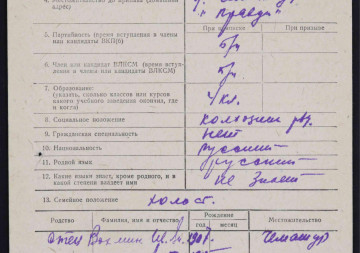 адрес)
"Правда"
При приписке
При призыве
5. Партийность (время вступления в члены
или кандидаты ВКП(б)
б/п
6. Член или кандидат ВЛКСМ (время вступ-
ления в члены или кандидаты ВЛКСМ)
б/п
7. Образование:
(указать, сколько классов или курсов
какого учебного заведения окончил, где
и когда)
4 кл.
8. Социальное положение
колхозник
9. Гражданская специальность
нет
10. Национальность
русский
11. Родной язык
русский
12. Какие языки знает, кроме родного, и в
какой степени владеет ими
не знает
13. Семейное положение
холост.
Родство
Фамилия, имя и отчество
Рождение
год
месяц
Местожительство
Отец